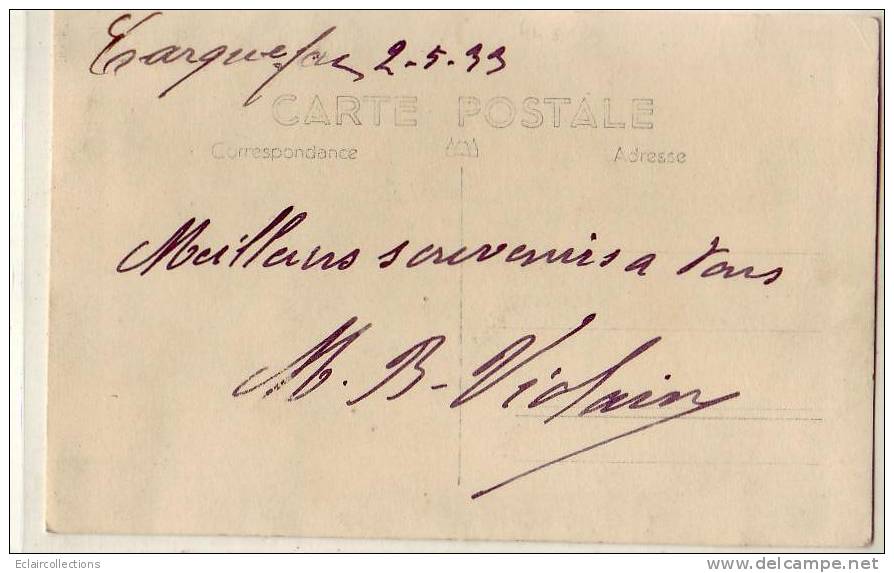 Carquefou 2-5-33
CARTE POSTALE
Correspondance Adresse
Meilleurs souvenirs a Vous
M. B-Violain
Eclaircollections
delcampe.net